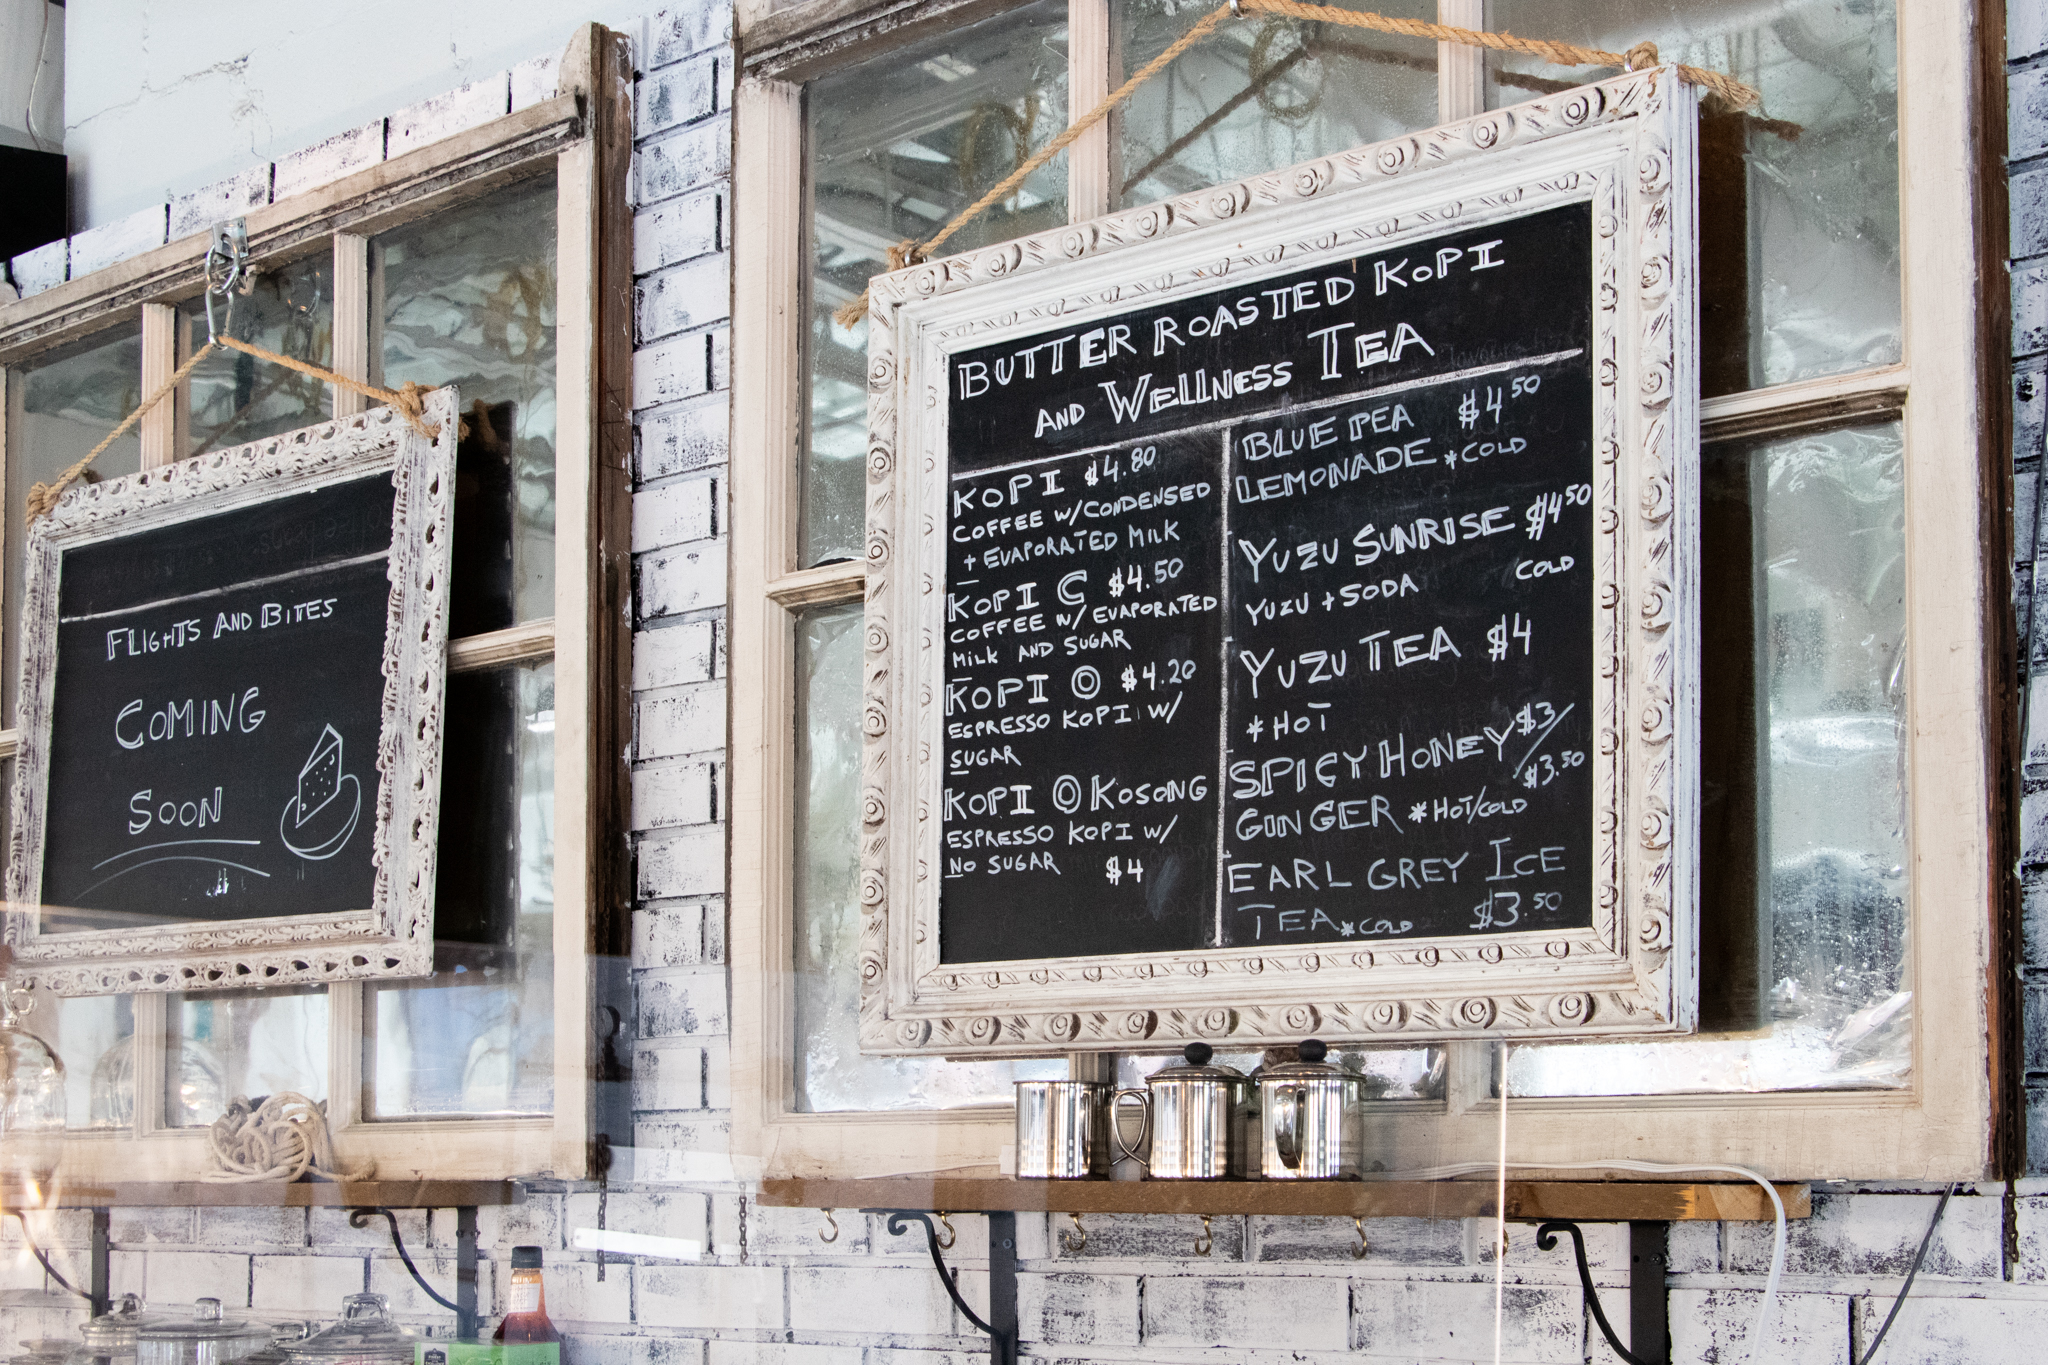 FLIGHTS AND BITES
COMING
SOON
BUTTER ROASTED KOPI
AND WELLNESS TEA
KOPI $4.80
COFFEE W/CONDENSED
+ EVAPORATED MILK
KOPI C $4.50
COFFEE W/ EVAPORATED
MILK AND SUGAR
KOPI O $4.20
ESPRESSO KOPI W/
SUGAR
KOPI O KOSONG
ESPRESSO KOPI W/
NO SUGAR $4
BLUE PEA $4 50
LEMONADE *COLD
YUZU SUNRISE $4 50
YUZU + SODA COLD
YUZU TEA $4
*HOT
SPICY HONEY $3/
$3.50
GINGER *HOT/COLD
EARL GREY ICE
TEA *COLD $3.50